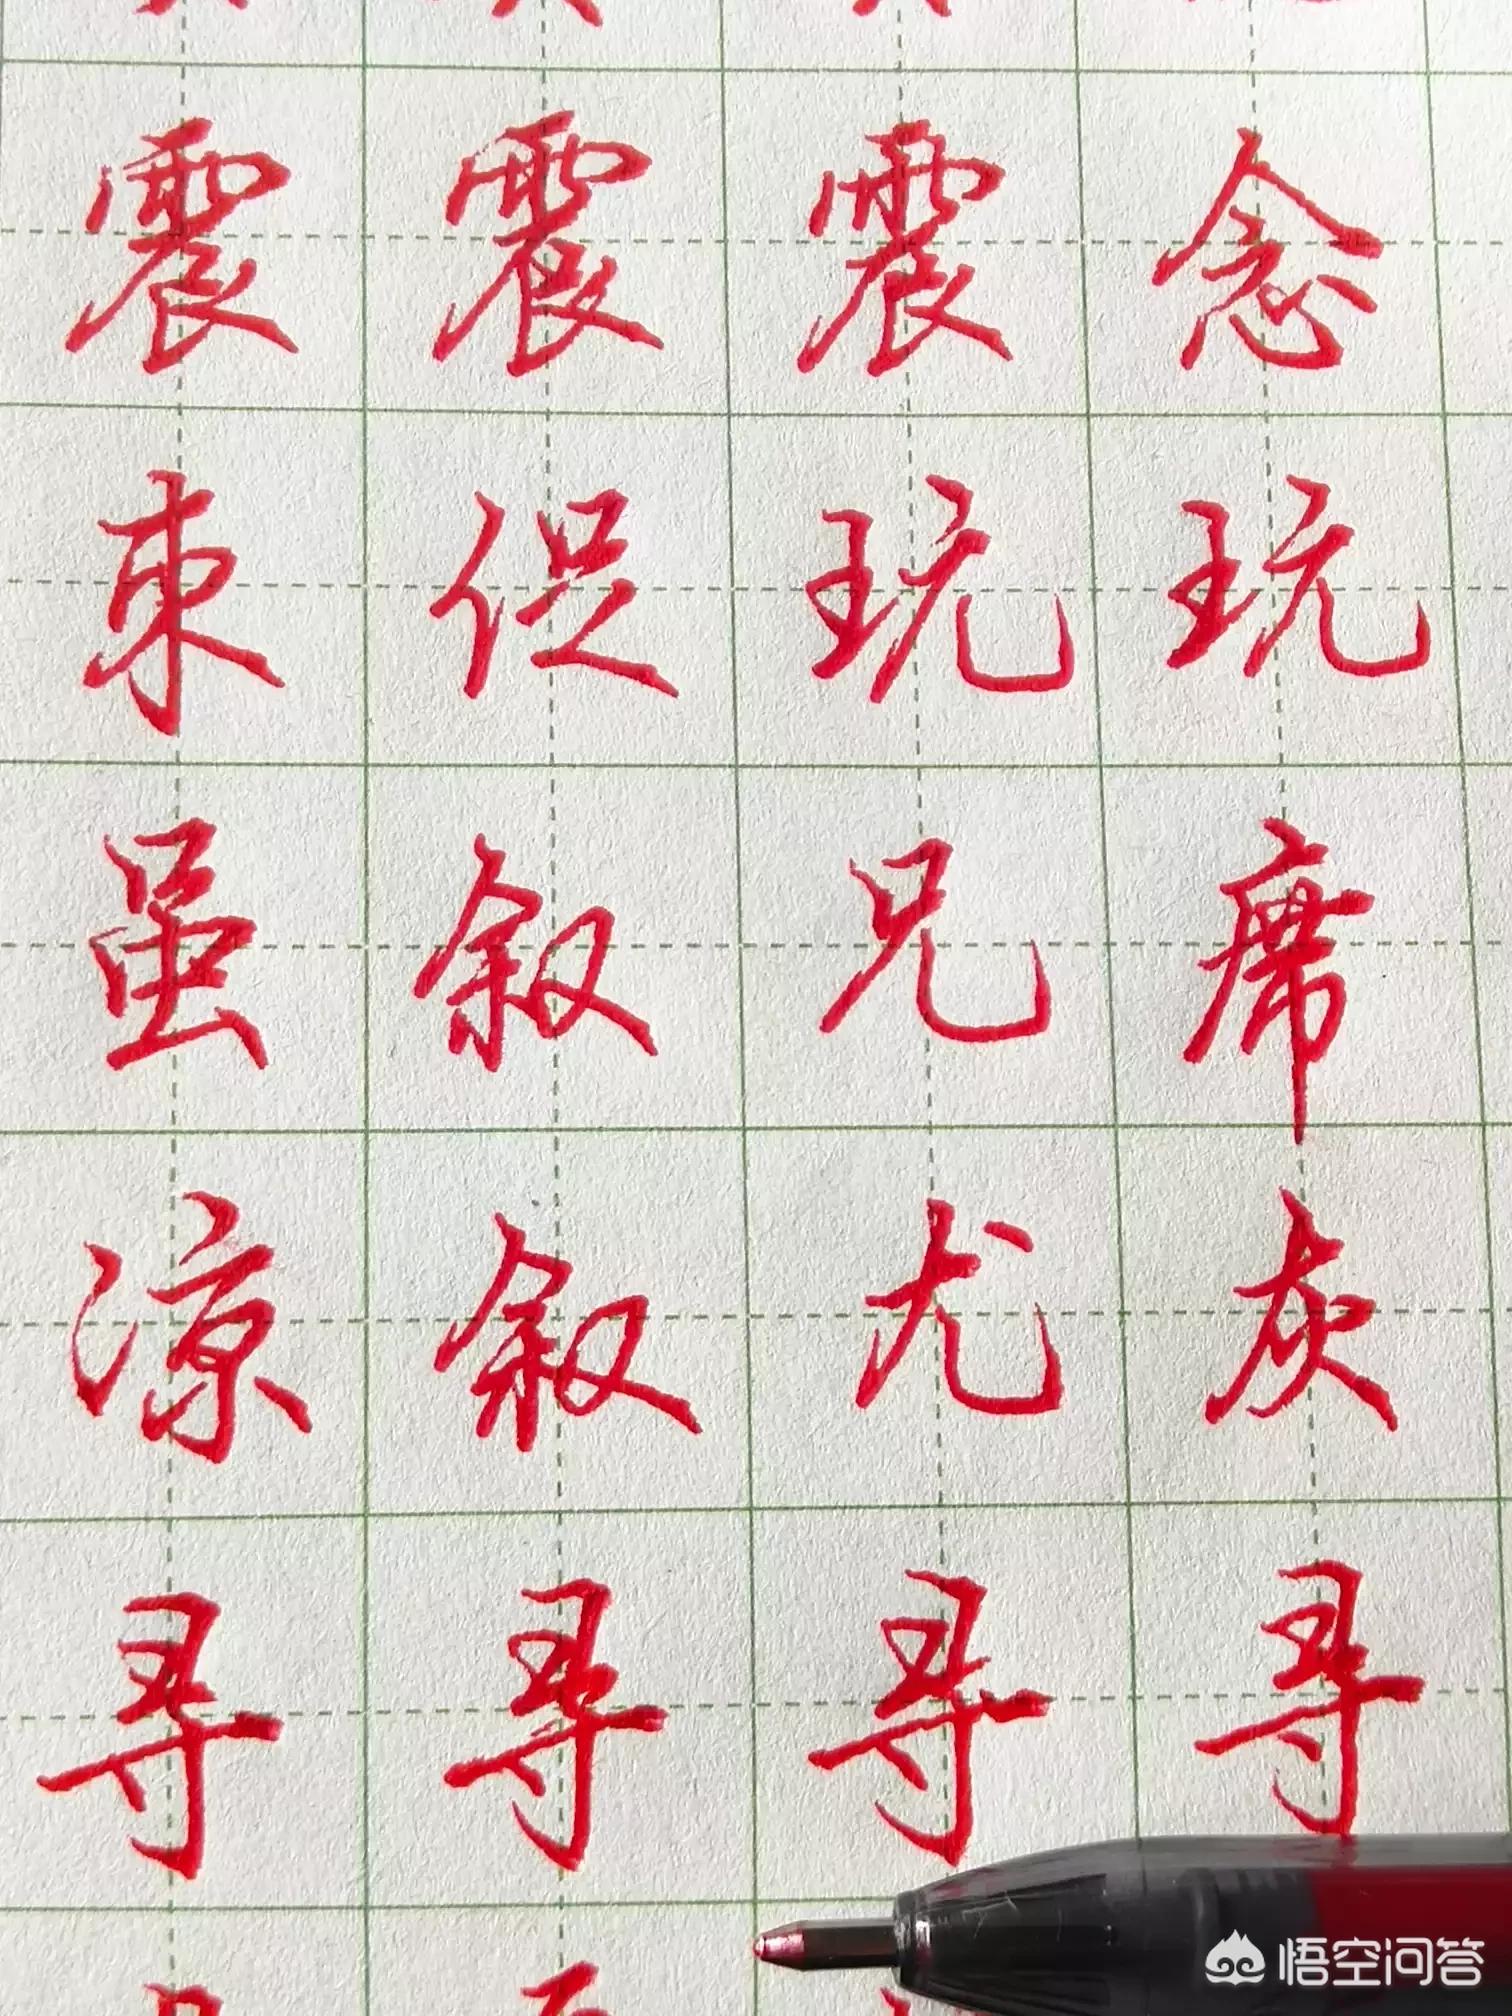 震震震念
束促玩玩
虽叙兄席
凉叙尤灰
寻寻寻寻
悟空问答